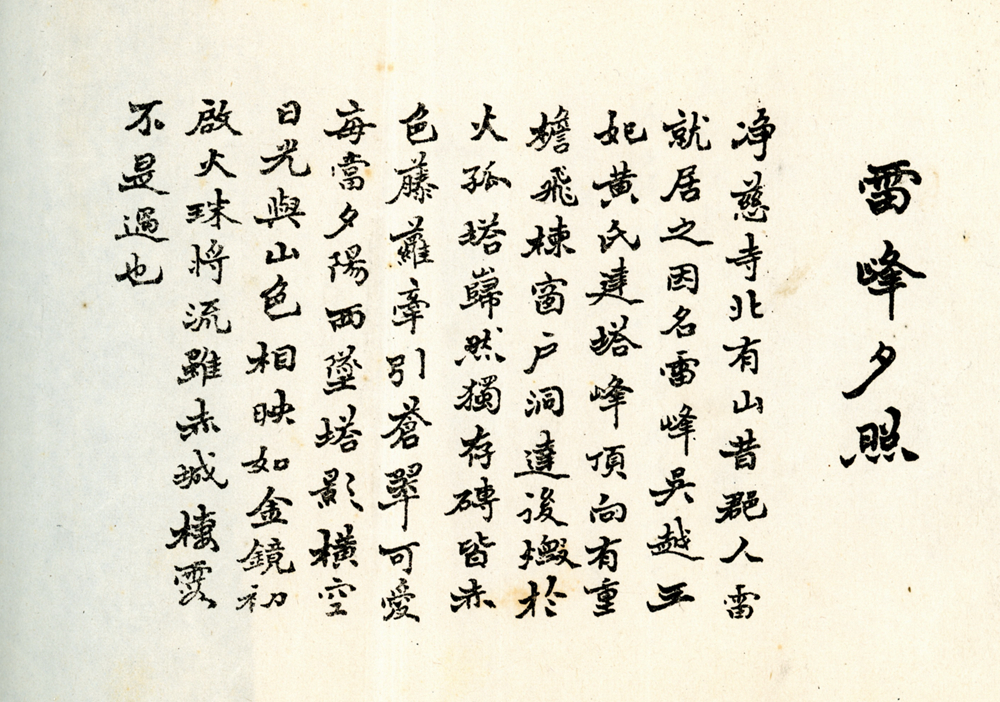 雷峰夕照
净慈寺北有山昔郡人雷
就居之因名雷峰吳越王
妃黃氏建塔峰頂向有重
檐飛棟窗戶洞達後燬於
火孤塔巋然獨存磚皆赤
色藤蘿牽引蒼翠可愛
每當夕陽西墜塔影橫空
日光與山色相映如金鏡初
啟火珠將流雖赤城棲霞
不是過也